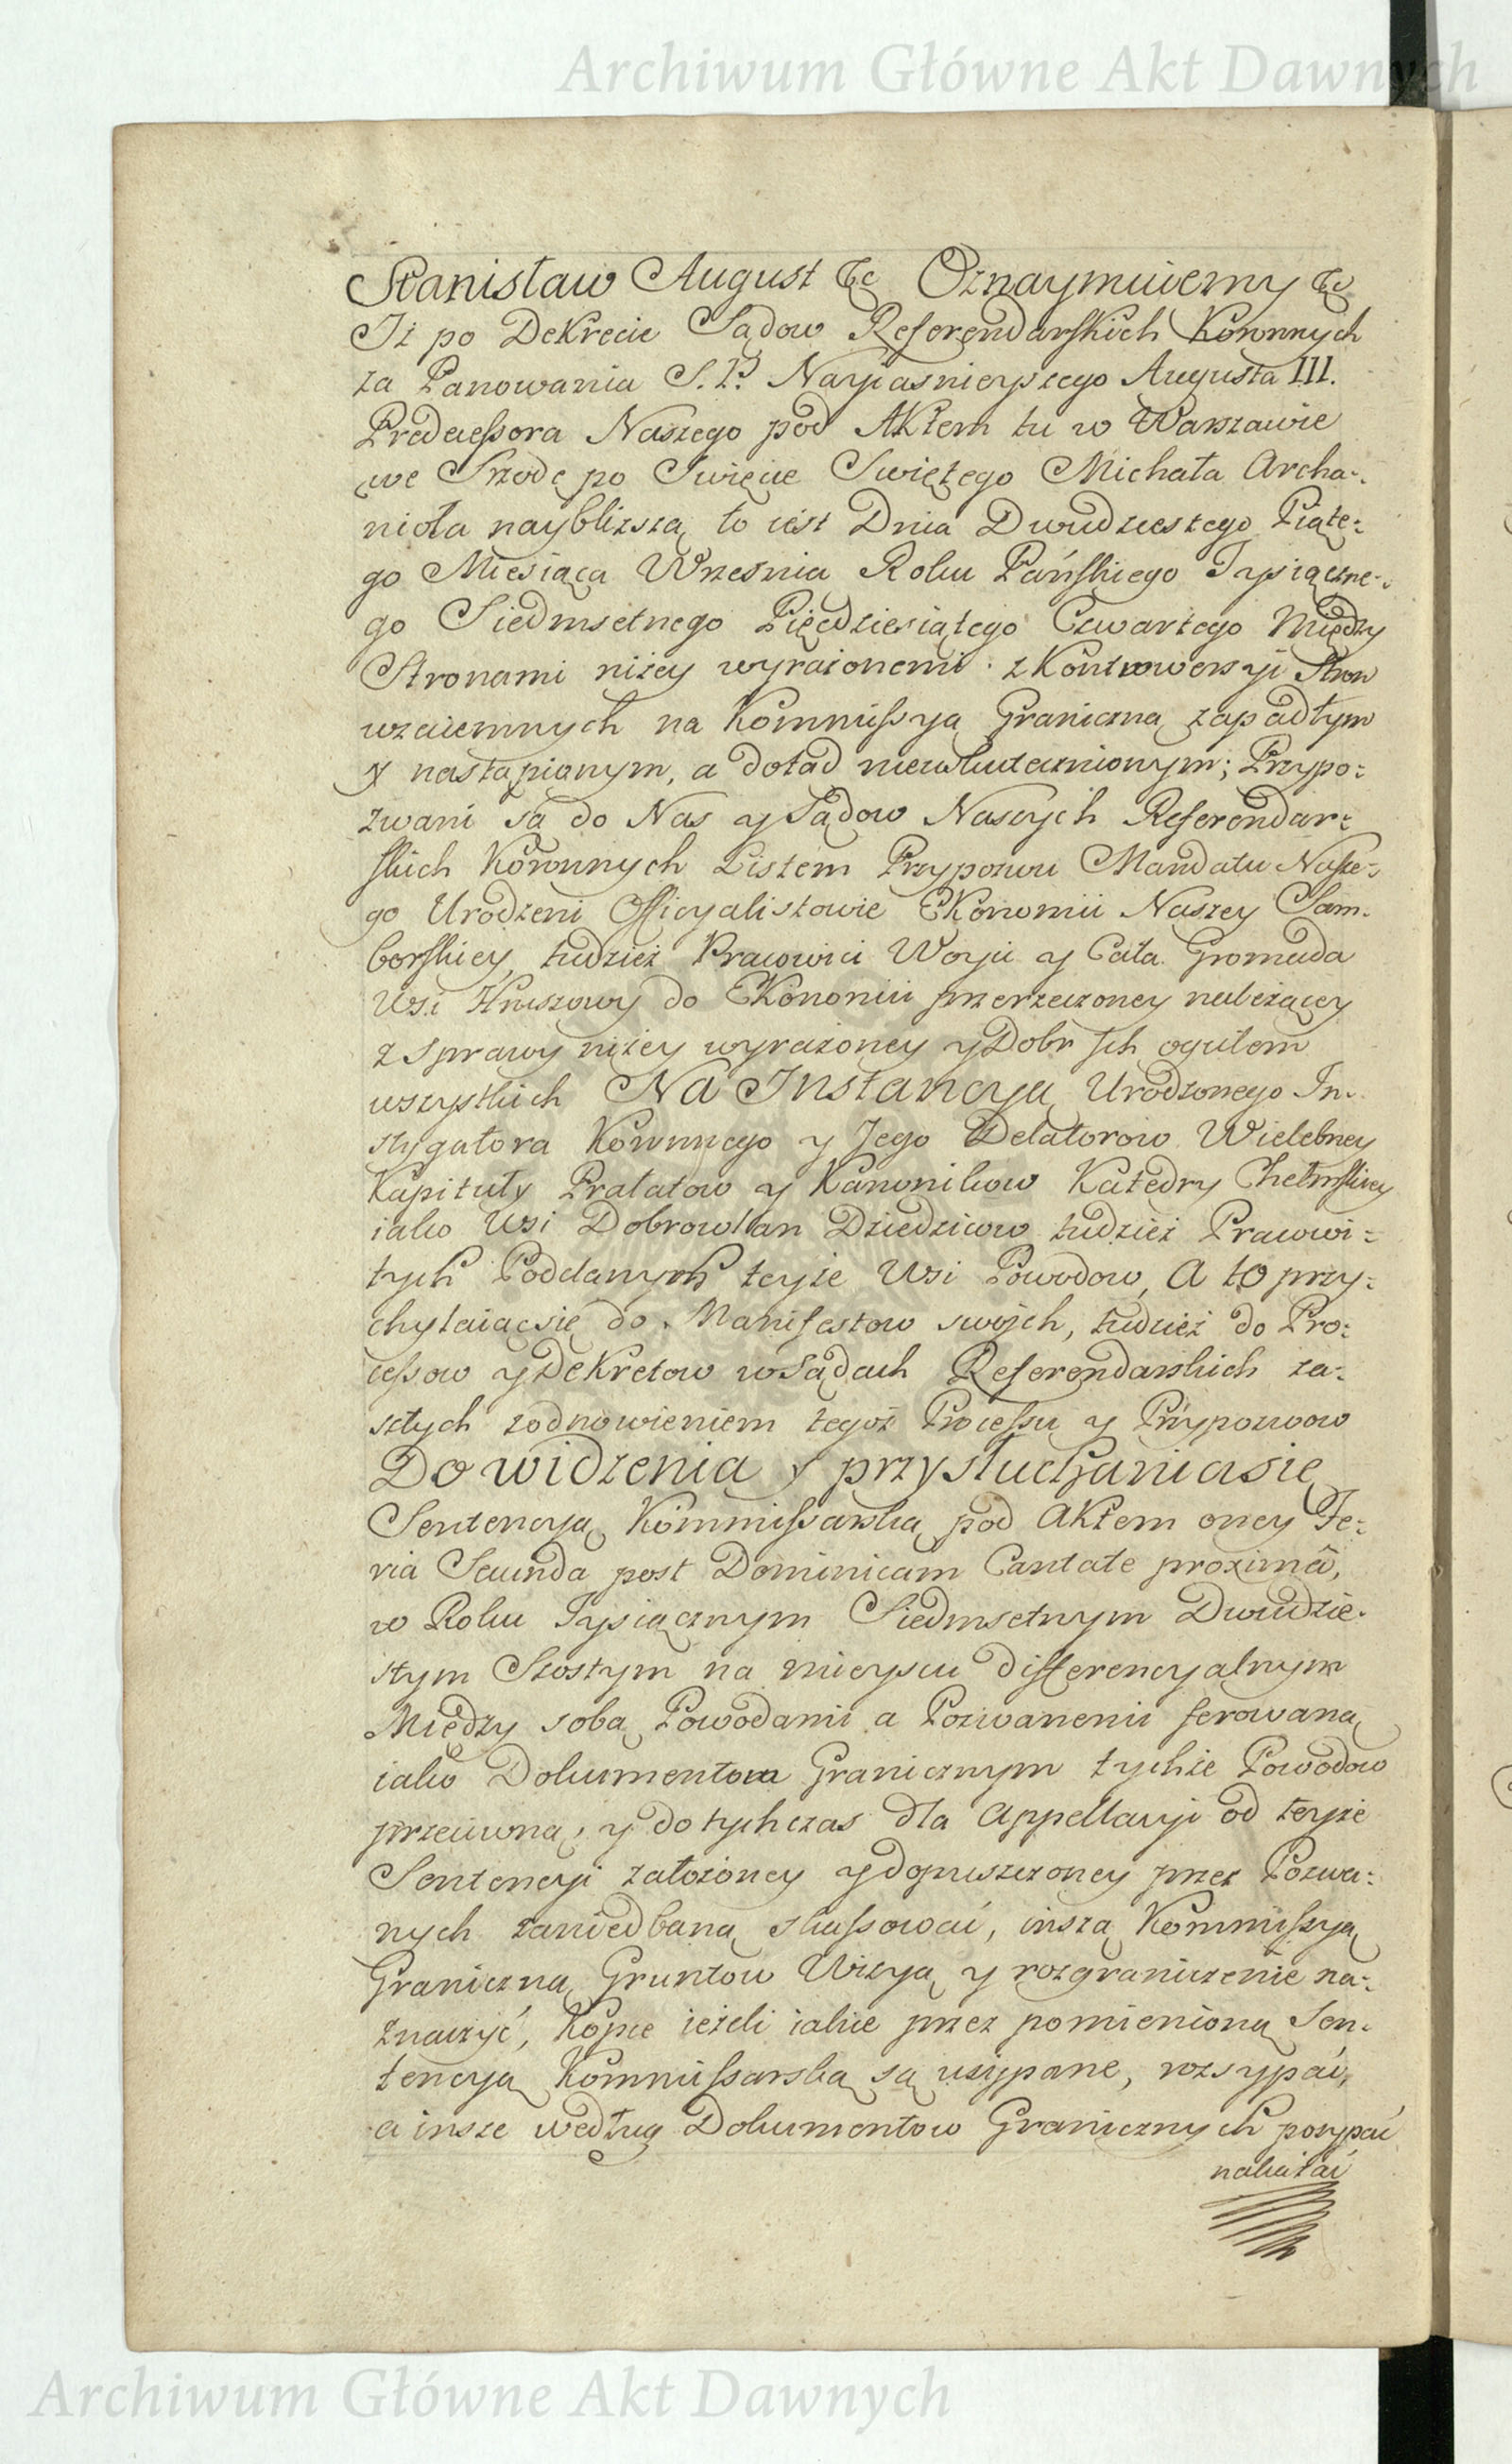 Archiwum Główne Akt Dawnych
Stanisław August &c Oznaymuiemy &c
Iż po Dekrecie Sądow Referendarskich Koronnych
za Panowania S. P. Nayiasnieyszego Augusta III.
Predecessora Naszego pod Aktem tu w Warszawie
we Srzodę po Swięcie Swiętego Michała Archa-
nioła naybliższą to iest Dnia Dwudziestego Piąte-
go Miesiąca Wrzesnia Roku Pańskiego Tysiączne-
go Siedmsetnego Pięcdziesiątego Czwartego Między
Stronami niżey wyrażonemi z Kontrowersyi Stron
wzaiemnych na Kommissyą Graniczną zapadłym
y nastąpionym, a dotąd nieuskutecznionym; Przypo-
zwani są do Nas y Sądow Naszych Referendar-
skich Koronnych Listem Przypozwu Mandatu Nasze-
go Urodzeni Officyalistowie Ekonomii Naszey Sam-
borskiey, tudzież Pracowici Woyci y Cała Gromada
Wsi Hruszowy do Ekonomii przerzeczoney należącey
z Sprawy niżey wyrażoney y Dobr Ich ogułem
wszystkich Na Instancyą Urodzonego In-
stygatora Koronnego y Jego Delatorow Wielebney
Kapituły Prałatow y Kanonikow Katedry Chełmskiey
iako Wsi Dobrowlan Dziedzicow tudzież Pracowi-
tych Poddanych teyże Wsi Powodow, A to przy-
chylaiącsię do Manifestow swoich, tudzież do Pro-
cessow y Dekretow w Sądach Referendarskich za-
szłych z odnowieniem tegoż Processu y Przypozwow
Do widzenia y przysłuchania się
Sentencyą Kommissarską pod Aktem oney Fe-
ria Secunda post Dominicam Cantate proximâ,
w Roku Tysiącznym Siedmsetnym Dwudzie-
stym Szostym na mieyscu differencyalnym
Między sobą Powodami a Pozwanemi ferowaną
iako Dokumentom Granicznym tychże Powodow
przeciwną, y dotychczas dla Appellacyi od teyże
Sentencyi założoney y dopuszczoney przez Pozwa-
nych zaniedbaną skassować, inszą Kommissyą
Graniczną Gruntow Wizyą y rozgraniczenie na-
znaczyć, Kopce ieżeli iakie przez pomienioną Sen-
tencyą Kommissarską są usypane, rozsypać,
a insze według Dokumentow Granicznych posypać
nakazać
Archiwum Główne Akt Dawnych